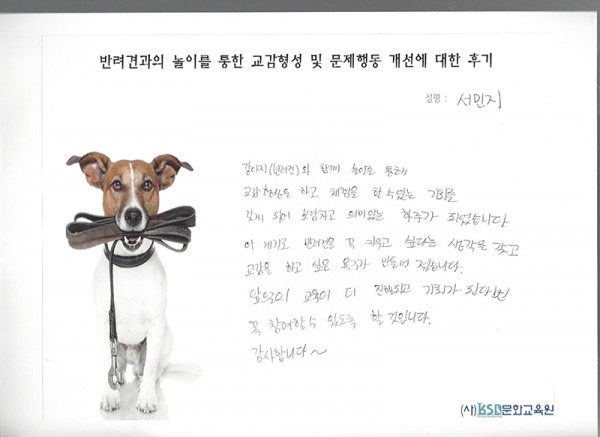 반려견과의 놀이를 통한 교감형성 및 문제행동 개선에 대한 후기
성명 : 서민지
강아지(반려견)와 함께 놀이를 통해
교감형성을 하고 체험을 할 수 있는 기회를
갖게 되어 보람차고 의미있는 하루가 되었습니다.
이 계기로 반려견을 꼭 키우고 싶다는 생각을 갖고
교감을 하고 싶은 욕구가 만들어 졌습니다.
앞으로의 교육이 더 진행되고 기회가 된다면
꼭 참여할수 있도록 할 것입니다.
감사합니다~
(사)KSD문화교육원